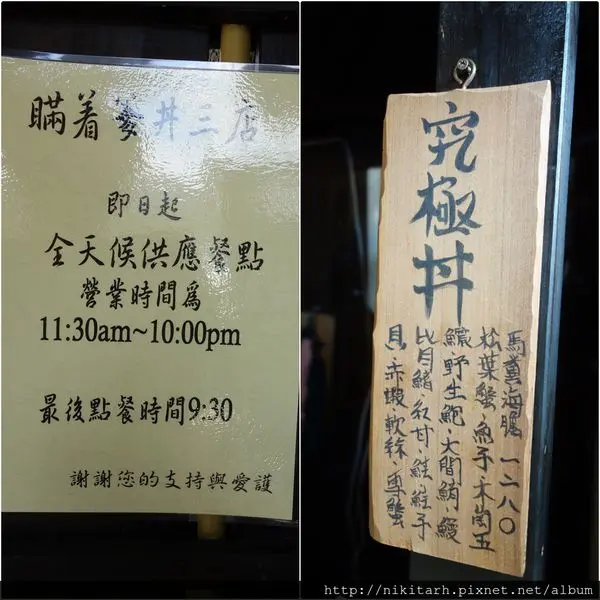 瞞着爹丼三店
即日起
全天候供應餐點
營業時間爲
11:30am~10:00pm
最後點餐時間9:30
謝謝您的支持與愛護
究極丼
馬糞海膽 一二八〇
松葉蟹、魚子、木崗五
野生鮑、大間鮪、鰻
比目鰭、紅甘、鮭、鮭子
貝、赤蝦、軟絲、雪蟹
http://nikitarh.pixnet.net/album